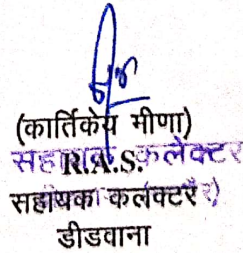 (कार्तिकेय मीणा)
सहायक कलेक्टर
R.A.S.
सहायक कलक्टर
डीडवाना